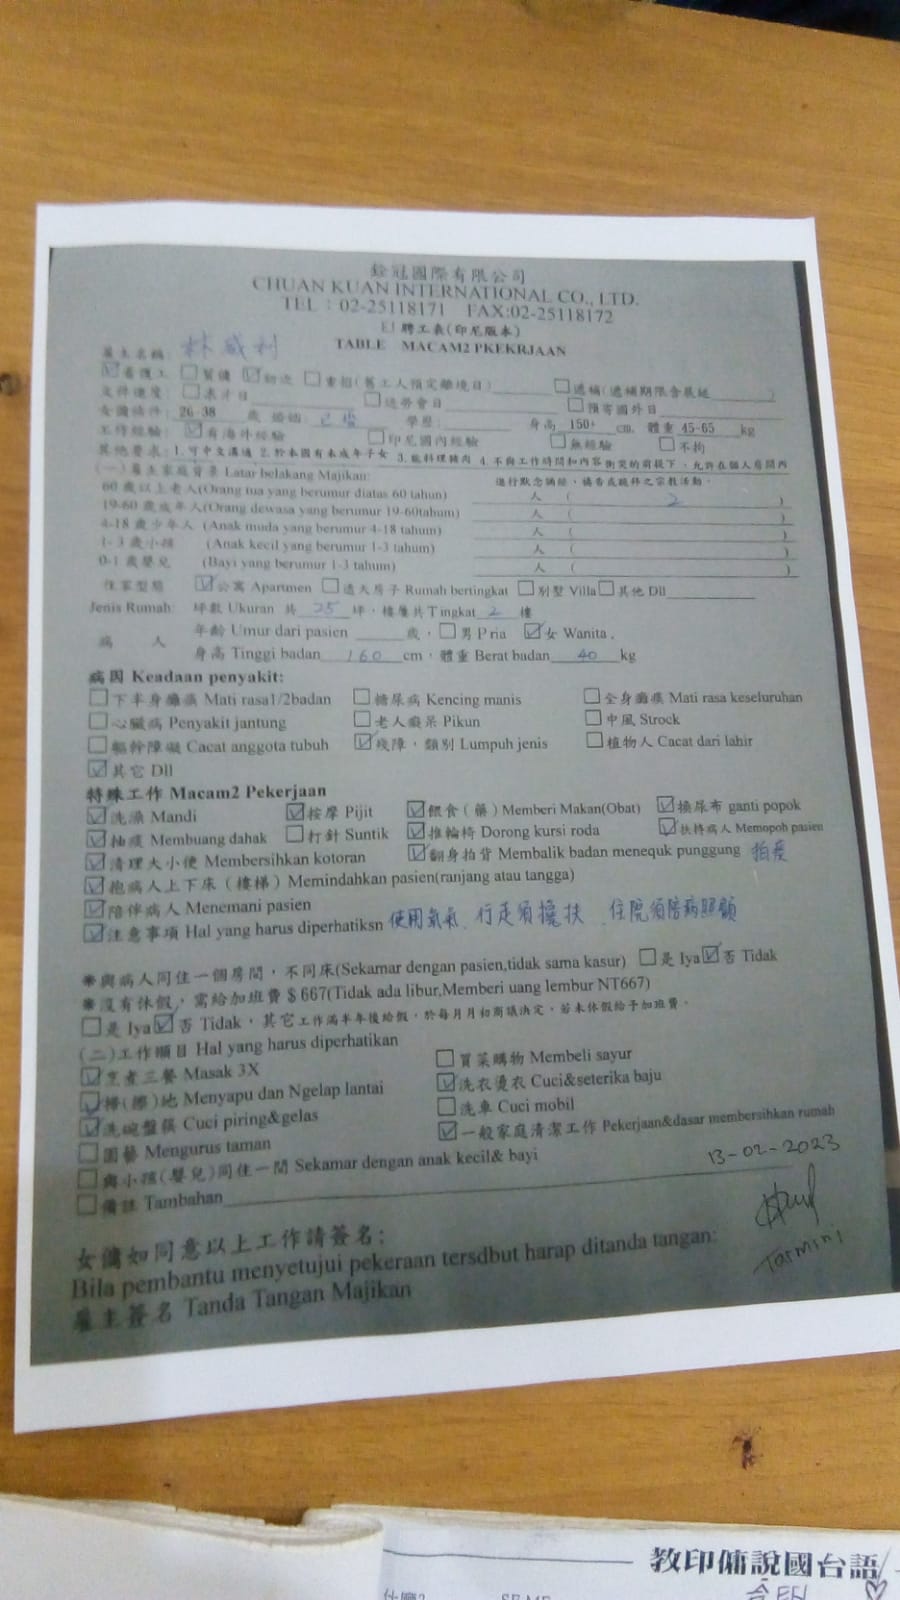 銓冠國際有限公司
CHUAN KUAN INTERNATIONAL CO., LTD.
TEL：02-25118171 FAX:02-25118172
聘工表(印尼版本)
TABLE MACAM2 PKEKRJAAN
雇主名稱: 林威利
☑看護工 □幫傭 ☑初次 □重招(舊工人預定離境日)______ □遞補(遞補期限含展延______)
文件進度: □求才日______ □送勞會日______ □預寄國外日______
女傭條件: 26-38 歲 婚姻: 已婚 學歷:______ 身高 150+ cm, 體重 45-65 kg
工作經驗: ☑有海外經驗 □印尼國內經驗 □無經驗 □不拘
其他要求: 1.可中文溝通 2.於本國有未成年子女 3.能料理豬肉 4.不與工作時間和內容衝突的前提下,允許在個人房間內
進行默念誦經、禱告或跪拜之宗教活動。
(一)雇主家庭背景 Latar belakang Majikan:
60歲以上老人(Orang tua yang berumur diatas 60 tahun) 人 ( 2 )
19-60歲成年人(Orang dewasa yang berumur 19-60tahum) 人 ( )
4-18歲少年人 (Anak muda yang berumur 4-18 tahum) 人 ( )
1-3歲小孩 (Anak kecil yang berumur 1-3 tahum) 人 ( )
0-1歲嬰兒 (Bayi yang berumur 1-3 tahum) 人 ( )
住家型態 ☑公寓 Apartmen □透天房子 Rumah bertingkat □別墅 Villa □其他 Dll______
Jenis Rumah: 坪數 Ukuran 共 25 坪, 樓層共 Tingkat 2 樓
病人 年齡 Umur dari pasien ____歲, □男 Pria ☑女 Wanita,
身高 Tinggi badan 160 cm, 體重 Berat badan 40 kg
病因 Keadaan penyakit:
□下半身癱瘓 Mati rasa1/2badan □糖尿病 Kencing manis □全身癱瘓 Mati rasa keseluruhan
□心臟病 Penyakit jantung □老人癡呆 Pikun □中風 Strock
□軀幹障礙 Cacat anggota tubuh ☑殘障, 類別 Lumpuh jenis □植物人 Cacat dari lahir
☑其它 Dll
特殊工作 Macam2 Pekerjaan
☑洗澡 Mandi ☑按摩 Pijit ☑餵食(藥) Memberi Makan(Obat) ☑換尿布 ganti popok
☑抽痰 Membuang dahak □打針 Suntik ☑推輪椅 Dorong kursi roda ☑扶持病人 Memopoh pasien
☑清理大小便 Membersihkan kotoran ☑翻身拍背 Membalik badan menequk punggung 拍痰
☑抱病人上下床(樓梯) Memindahkan pasien(ranjang atau tangga)
☑陪伴病人 Menemani pasien
☑注意事項 Hal yang harus diperhatiksn 使用氧氣、行走須攙扶、住院須陪病照顧
＊與病人同住一個房間, 不同床(Sekamar dengan pasien,tidak sama kasur) □是 Iya ☑否 Tidak
＊沒有休假, 需給加班費 $667(Tidak ada libur,Memberi uang lembur NT667)
□是 Iya ☑否 Tidak, 其它工作滿半年後給假, 於每月月初商議決定, 若未休假給予加班費。
(二)工作項目 Hal yang harus diperhatikan
☑烹煮三餐 Masak 3X □買菜購物 Membeli sayur
☑掃(擦)地 Menyapu dan Ngelap lantai ☑洗衣燙衣 Cuci&seterika baju
☑洗碗盤筷 Cuci piring&gelas □洗車 Cuci mobil
□園藝 Mengurus taman ☑一般家庭清潔工作 Pekerjaan&dasar membersihkan rumah
□與小孩(嬰兒)同住一間 Sekamar dengan anak kecil& bayi
□備註 Tambahan
13-02-2023
女傭如同意以上工作請簽名:
Bila pembantu menyetujui pekeraan tersdbut harap ditanda tangan:
Tarmini
雇主簽名 Tanda Tangan Majikan
教印傭說國台語